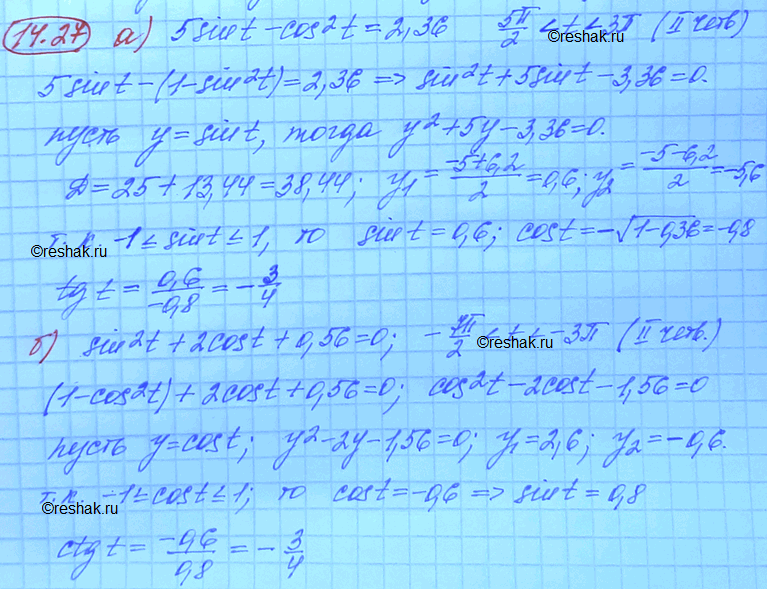 14.27 а) 5sint - cos²t = 2,36 5π/2 < t < 3π (II четв)
reshak.ru
5sint - (1 - sin²t) = 2,36 => sin²t + 5sint - 3,36 = 0.
пусть y = sint, тогда y² + 5y - 3,36 = 0.
D = 25 + 13,44 = 38,44; y₁ = (-5+6,2)/2 = 0,6; y₂ = (-5-6,2)/2 = -5,6
т.к. -1 ≤ sint ≤ 1, то sint = 0,6; cost = -√(1-0,36) = -0,8
©reshak.ru
tg t = 0,6/-0,8 = -3/4
б) sin²t + 2cost + 0,56 = 0; -7π/2 < t < -3π (II четв.)
©reshak.ru
(1 - cos²t) + 2cost + 0,56 = 0; cos²t - 2cost - 1,56 = 0
пусть y = cost; y² - 2y - 1,56 = 0; y₁ = 2,6; y₂ = -0,6.
т.к. -1 ≤ cost ≤ 1; то cost = -0,6 => sint = 0,8
©reshak.ru
ctg t = -0,6/0,8 = -3/4